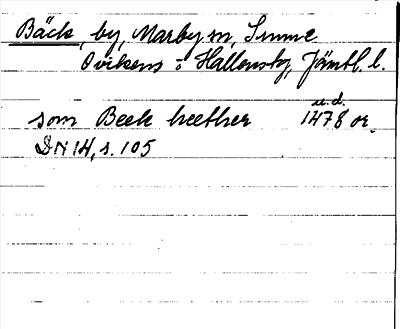 Bäck, by, Marby sn, Sunne
Ovikens o Hallens tg, Jämtl. l.
u.d.
som Beck heether 1478 or.
DN 14, s. 105